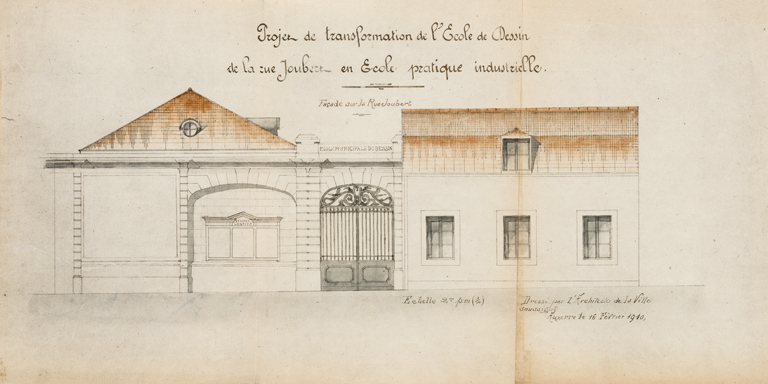 Projet de transformation de l'Ecole de Dessin
de la rue Joubert en Ecole pratique industrielle.
Façade sur la Rue Joubert
ECOLE MUNICIPALE DE DESSIN
Echelle
Dressé par l'Architecte de la Ville
Auxerre le 16 Février 1910,